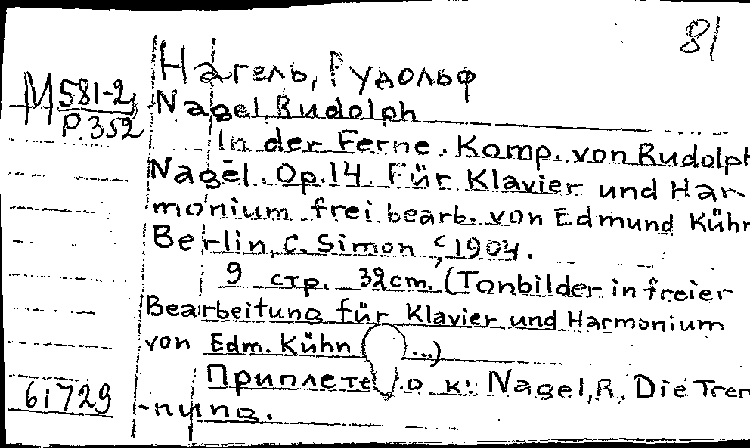 81
Нагель, Рудольф
М 581-2
Р.352
Nagel, Rudolph
In der Ferne. Komp. von Rudolph
Nagel. Op.14. Für Klavier und Har-
monium frei bearb. von Edmund Kühn
Berlin, C. Simon, c 1904.
9 стр. 32cm. (Tonbilder in freier
Bearbeitung für Klavier und Harmonium
von Edm. Kühn ( ...)
к: Nagel, R. Die Tren-
nung.
61729